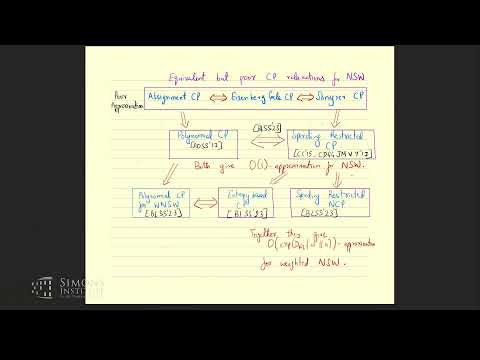 Equivalent but poor CP relaxations for NSW
Poor
Approximation
Assignment CP ⇔ Eisenberg Gale CP ⇔ Shmyrev CP
[BLSS'23]
Polynomial CP
[AOSS'17]
Spending Restricted
CP
Both give O(1)-approximation for NSW.
Polynomial CP
for WNSW
[BLSS'23]
Entropy based
CP
[BLSS'23]
Spending Restricted
NCP
[BLSS'23]
Together they give
-approximation
for weighted NSW.
SIMONS
INSTITUTE